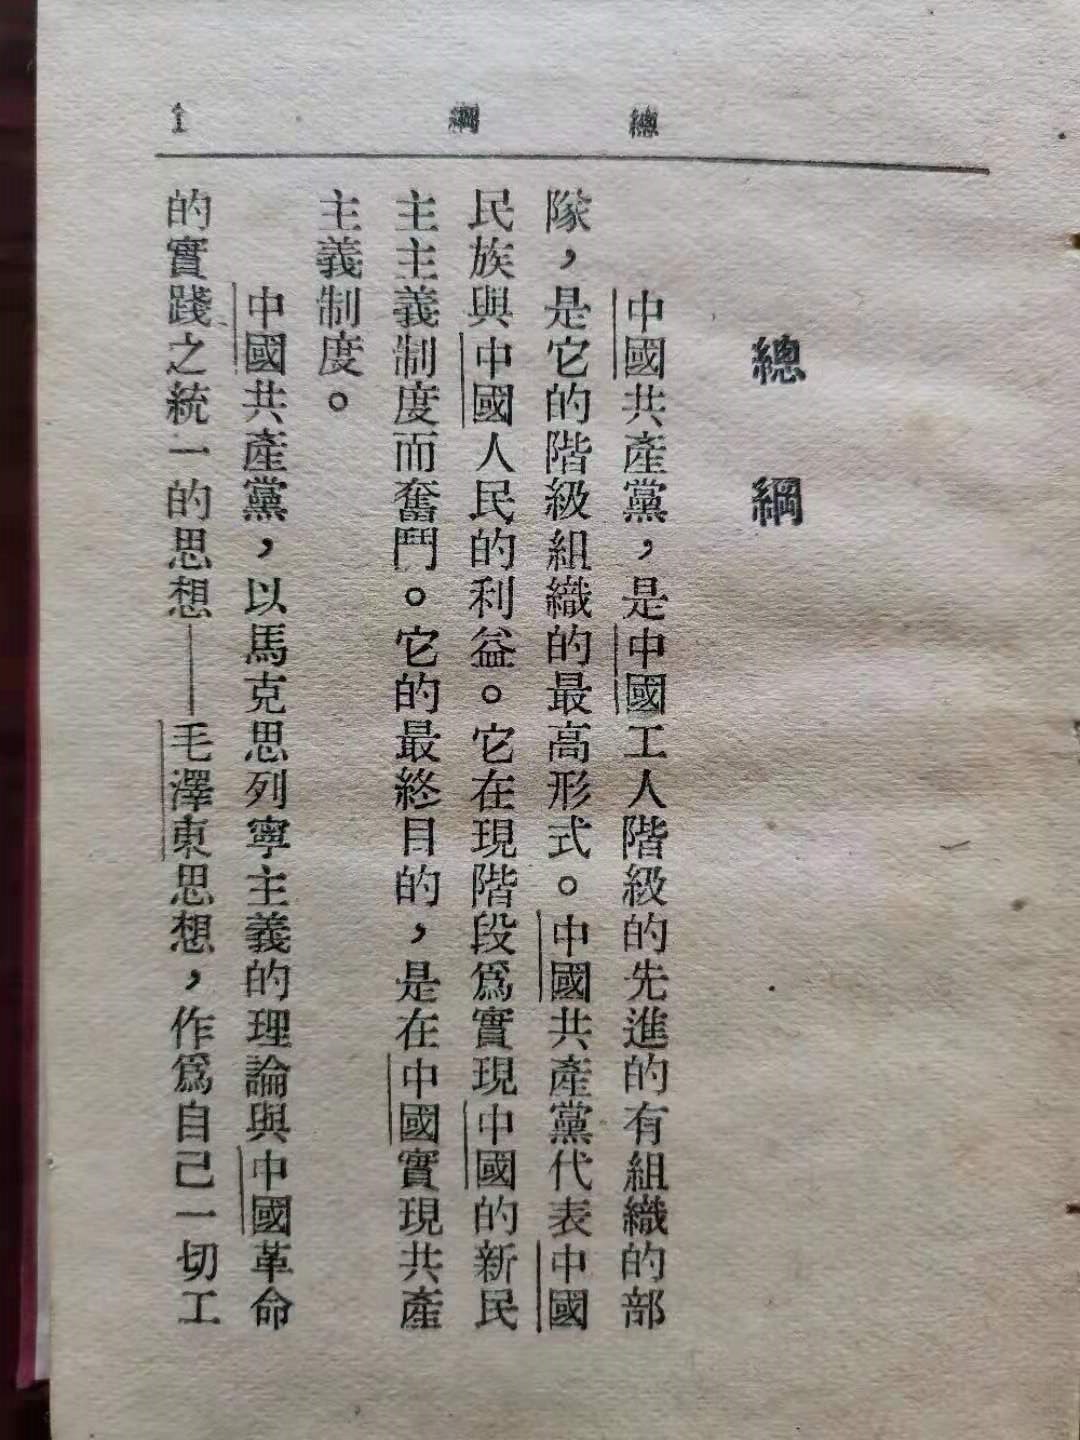 總綱
1
總綱
中國共產黨，是中國工人階級的先進的有組織的部
隊，是它的階級組織的最高形式。中國共產黨代表中國
民族與中國人民的利益。它在現階段爲實現中國的新民
主主義制度而奮鬥。它的最終目的，是在中國實現共產
主義制度。
中國共產黨，以馬克思列寧主義的理論與中國革命
的實踐之統一的思想——毛澤東思想，作爲自己一切工